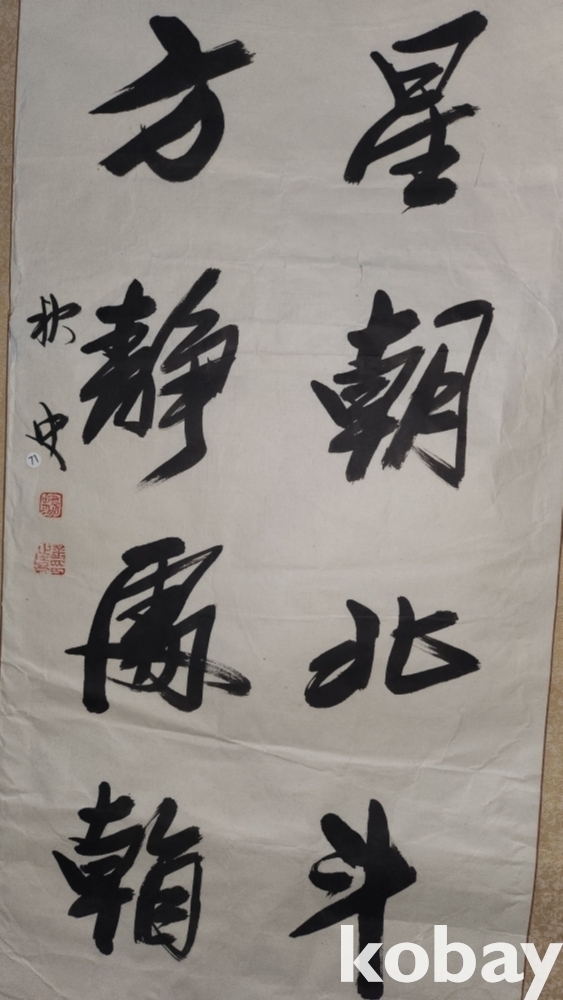 星朝北斗
方靜處
秋史
71
kobay